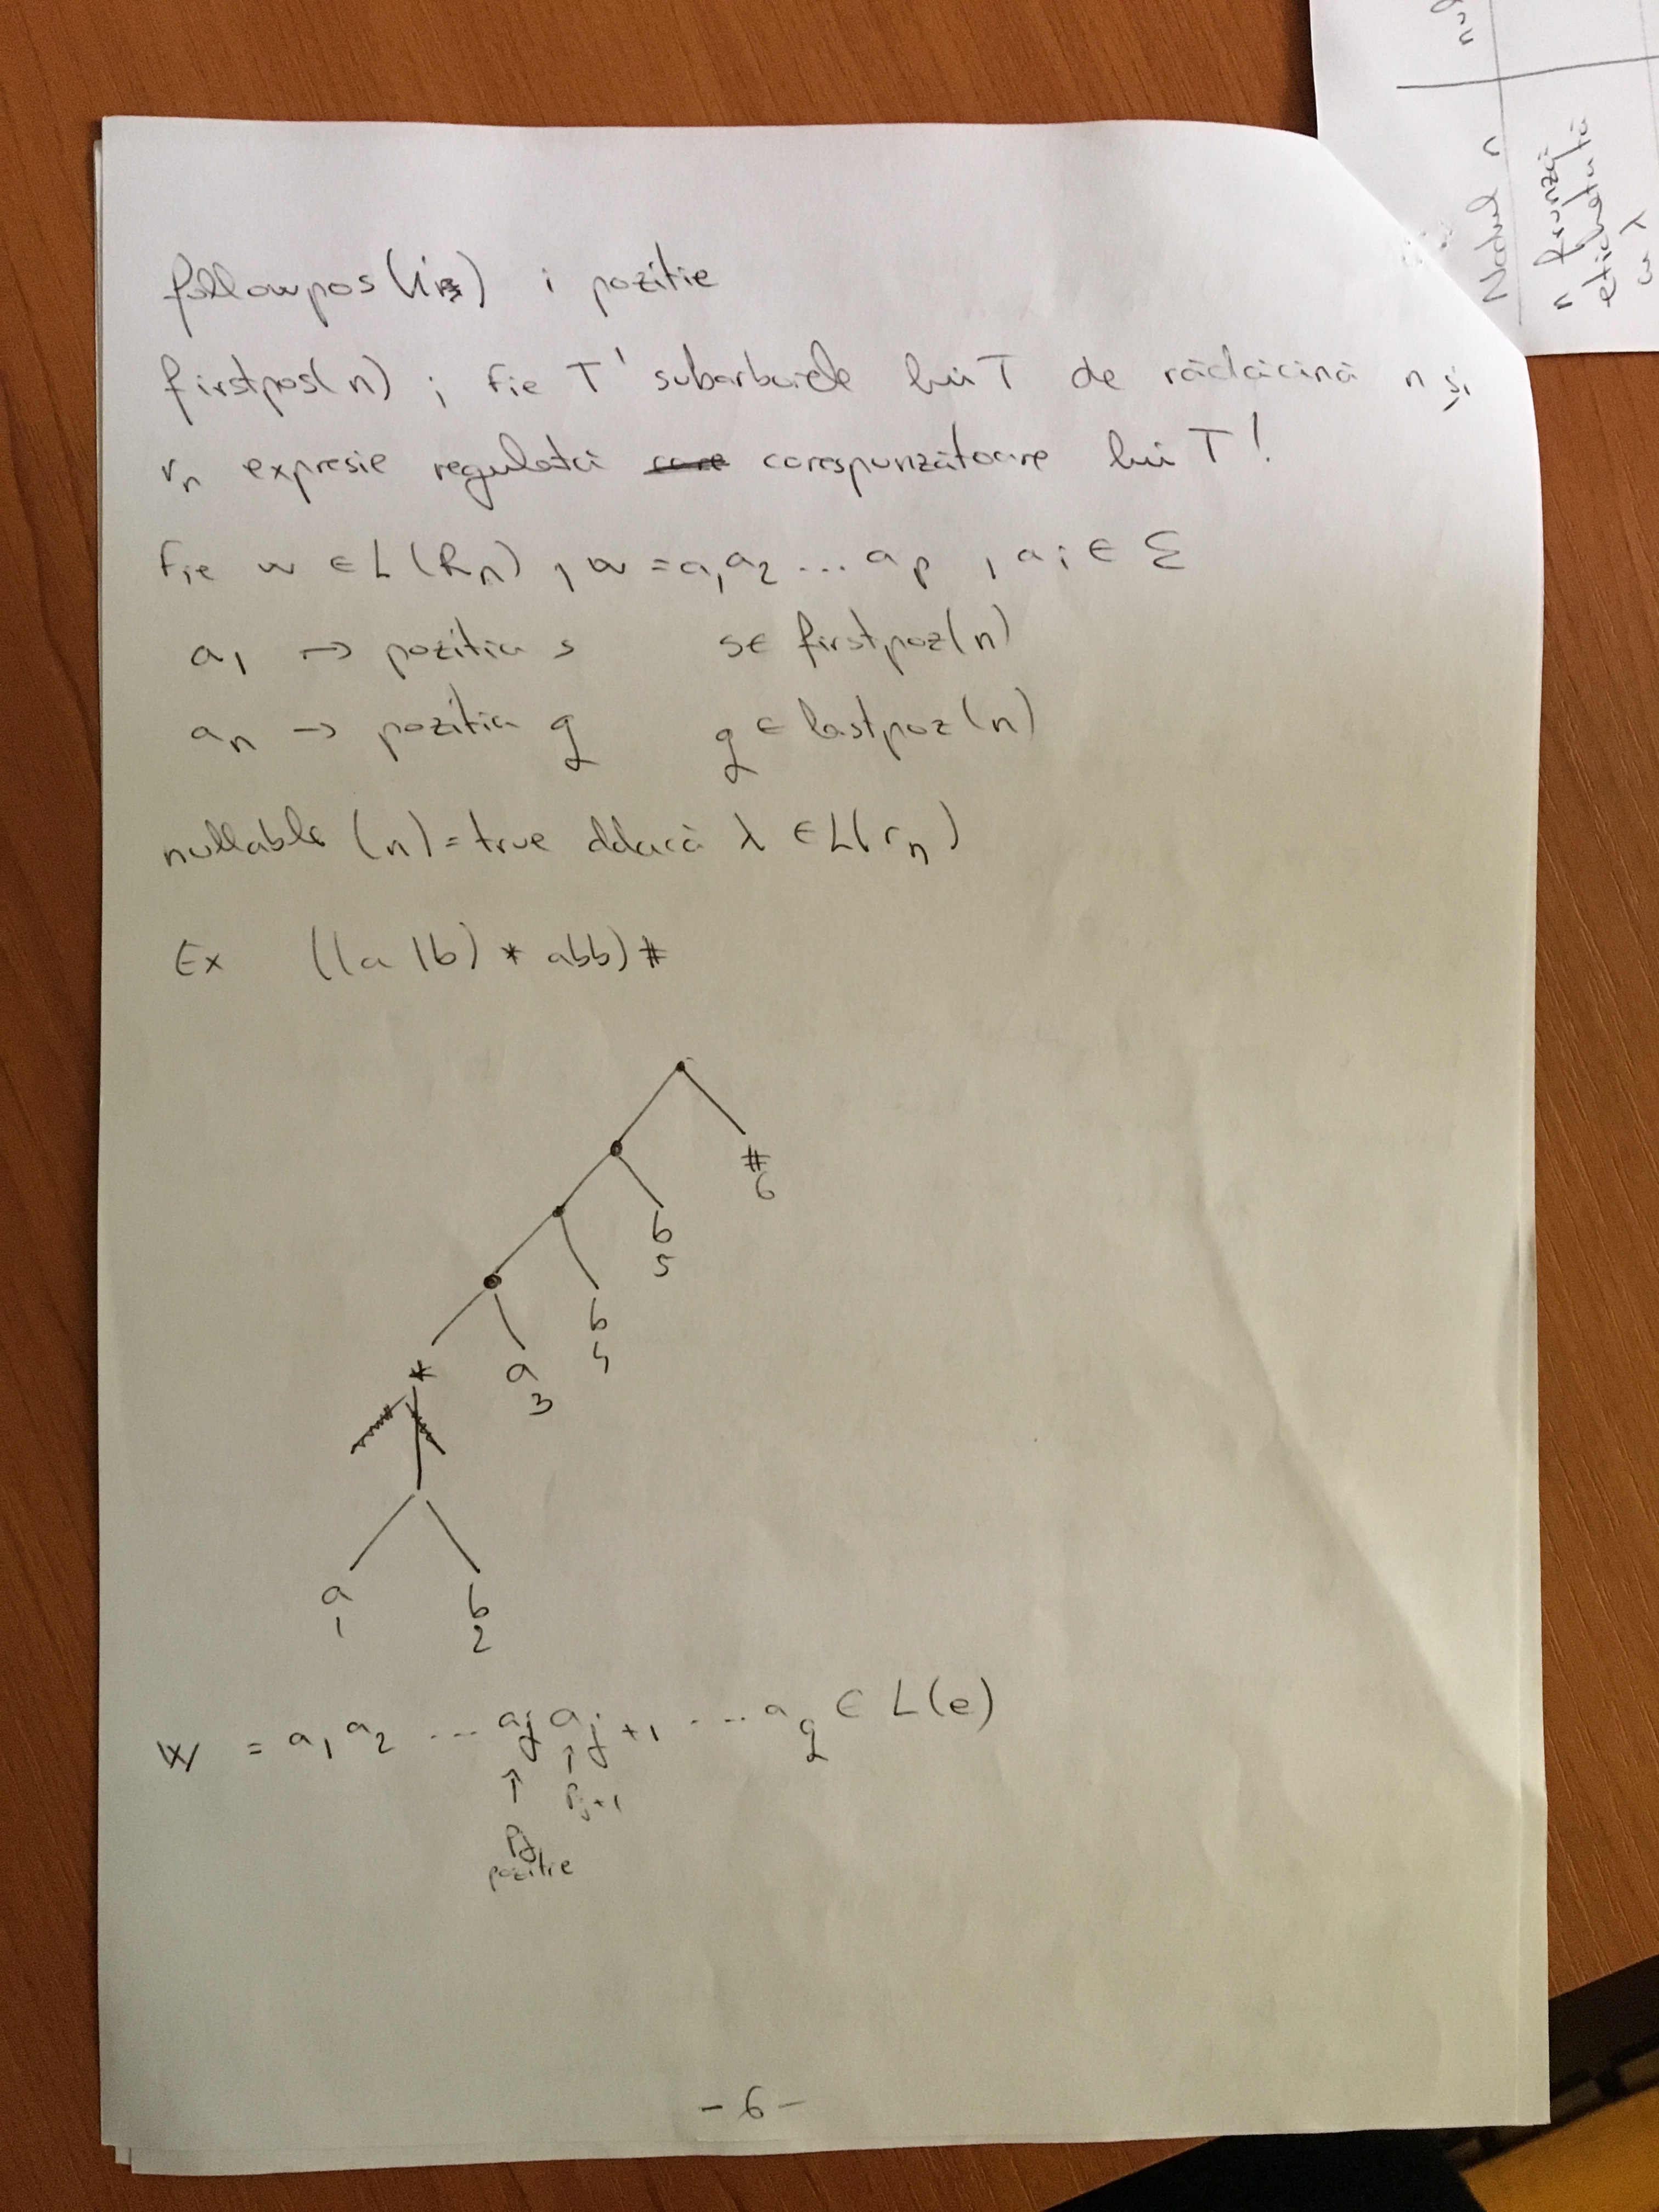 followpos(i) i pozitie
firstpos(n) ; fie T' subarborele lui T de rădăcină n și
rn expresie regulată care corespunzătoare lui T'.
Fie w ∈ L(Rn) , w = a1a2 ... ap , ai ∈ Σ
a1 → pozitia s s ∈ firstpoz(n)
an → pozitia q q ∈ lastpoz(n)
nullable (n) = true ddacă λ ∈ L(rn)
Ex ((a|b) * abb) #
#
6
b
5
b
4
*
a
3
a
1
b
2
w = a1 a2 ... aj aj+1 ... aq ∈ L(e)
↑ ↑
pj+1
pj
pozitie
- 6 -
Nodul n
n frunză
etichetată
cu λ